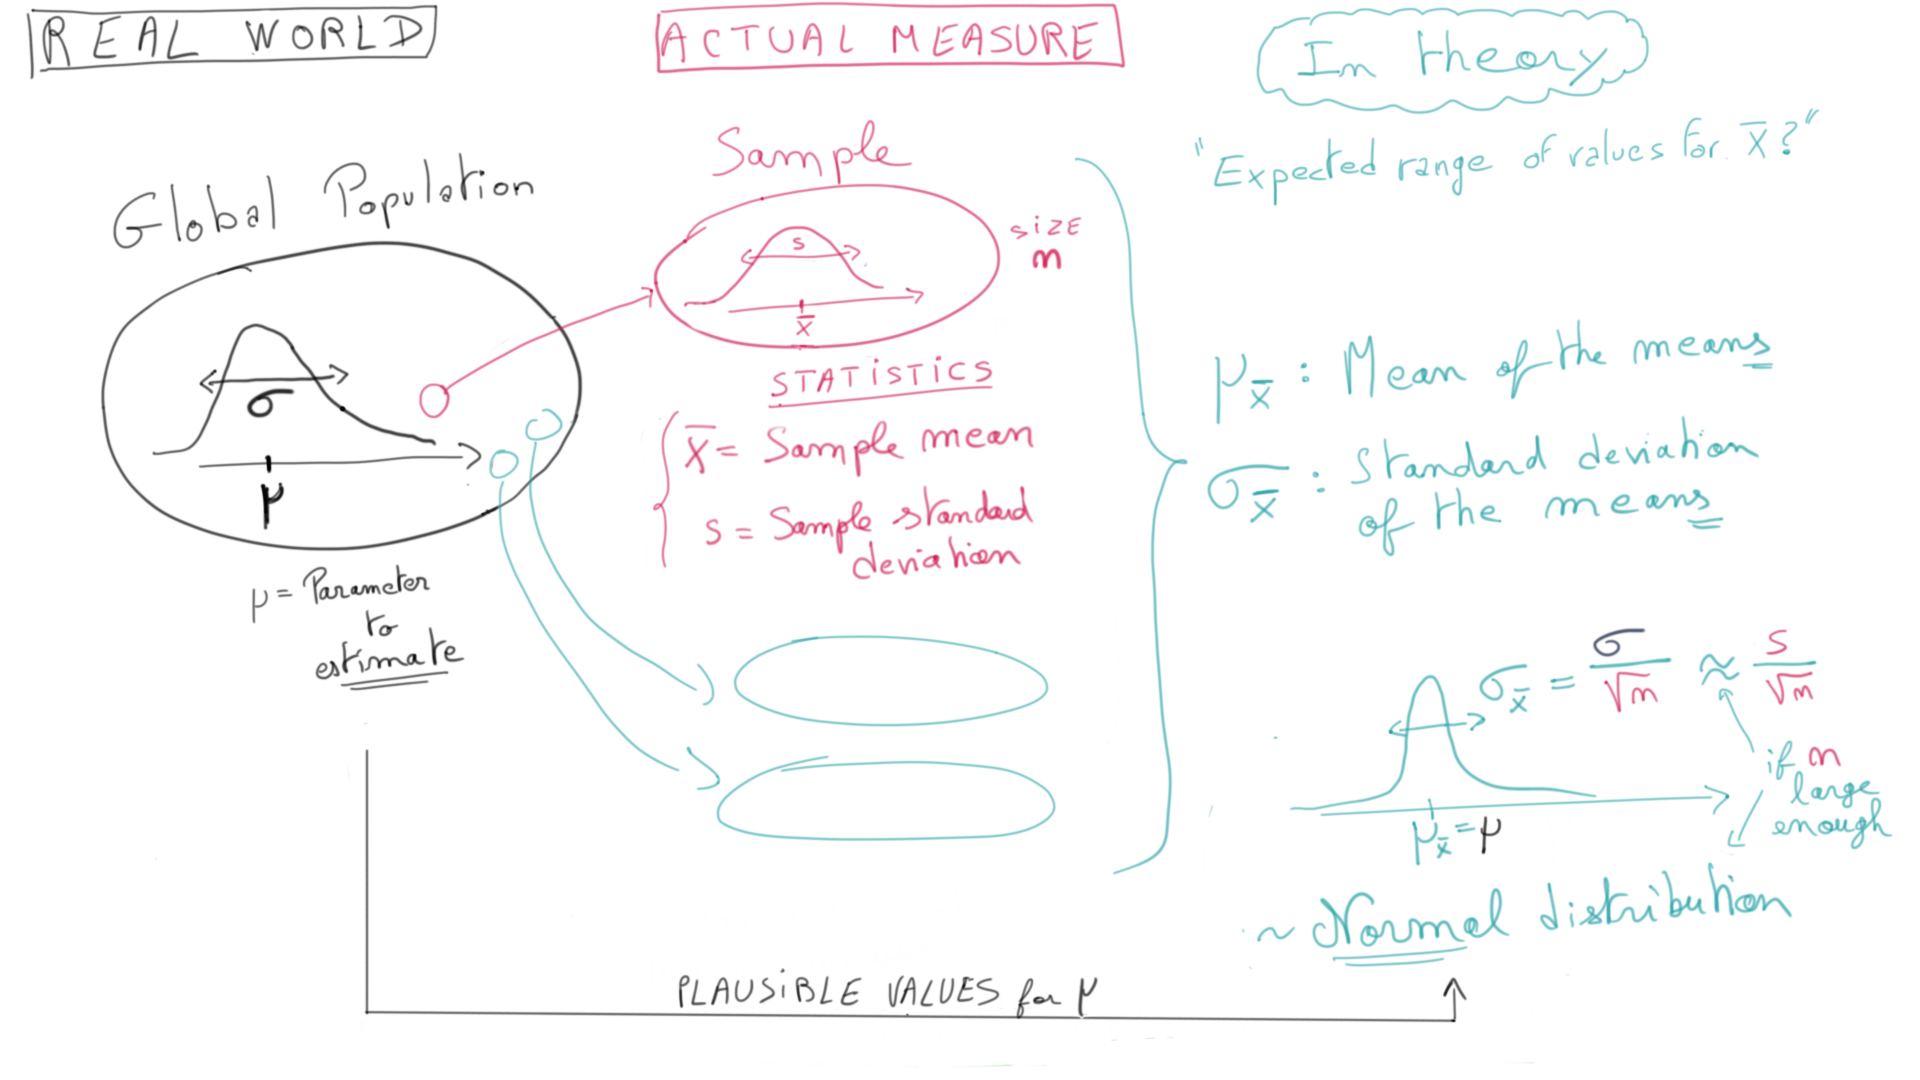 REAL WORLD
Global Population
σ
μ
μ = Parameter
to
estimate
ACTUAL MEASURE
Sample
size
n
s
x̄
STATISTICS
x̄ = Sample mean
s = Sample standard
deviation
In theory
"Expected range of values for x̄?"
μx̄ : Mean of the means
σx̄ : Standard deviation
of the means
σx̄ = σ/√n ≈ s/√n
if n
large
enough
μx̄ = μ
~ Normal distribution
PLAUSIBLE VALUES for μ